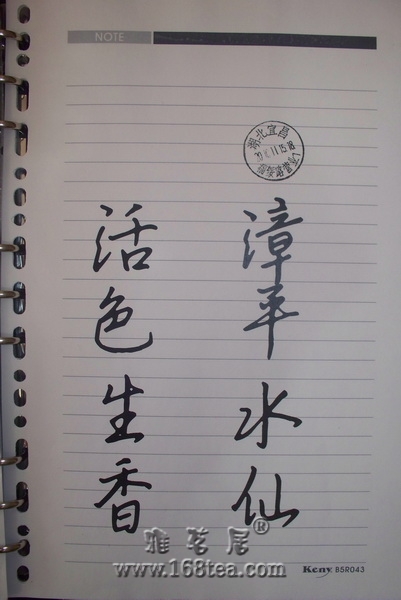 NOTE
湖北宜昌
漳平水仙
活色生香
雅茗居®
www.168tea.com
Kcny B5R043